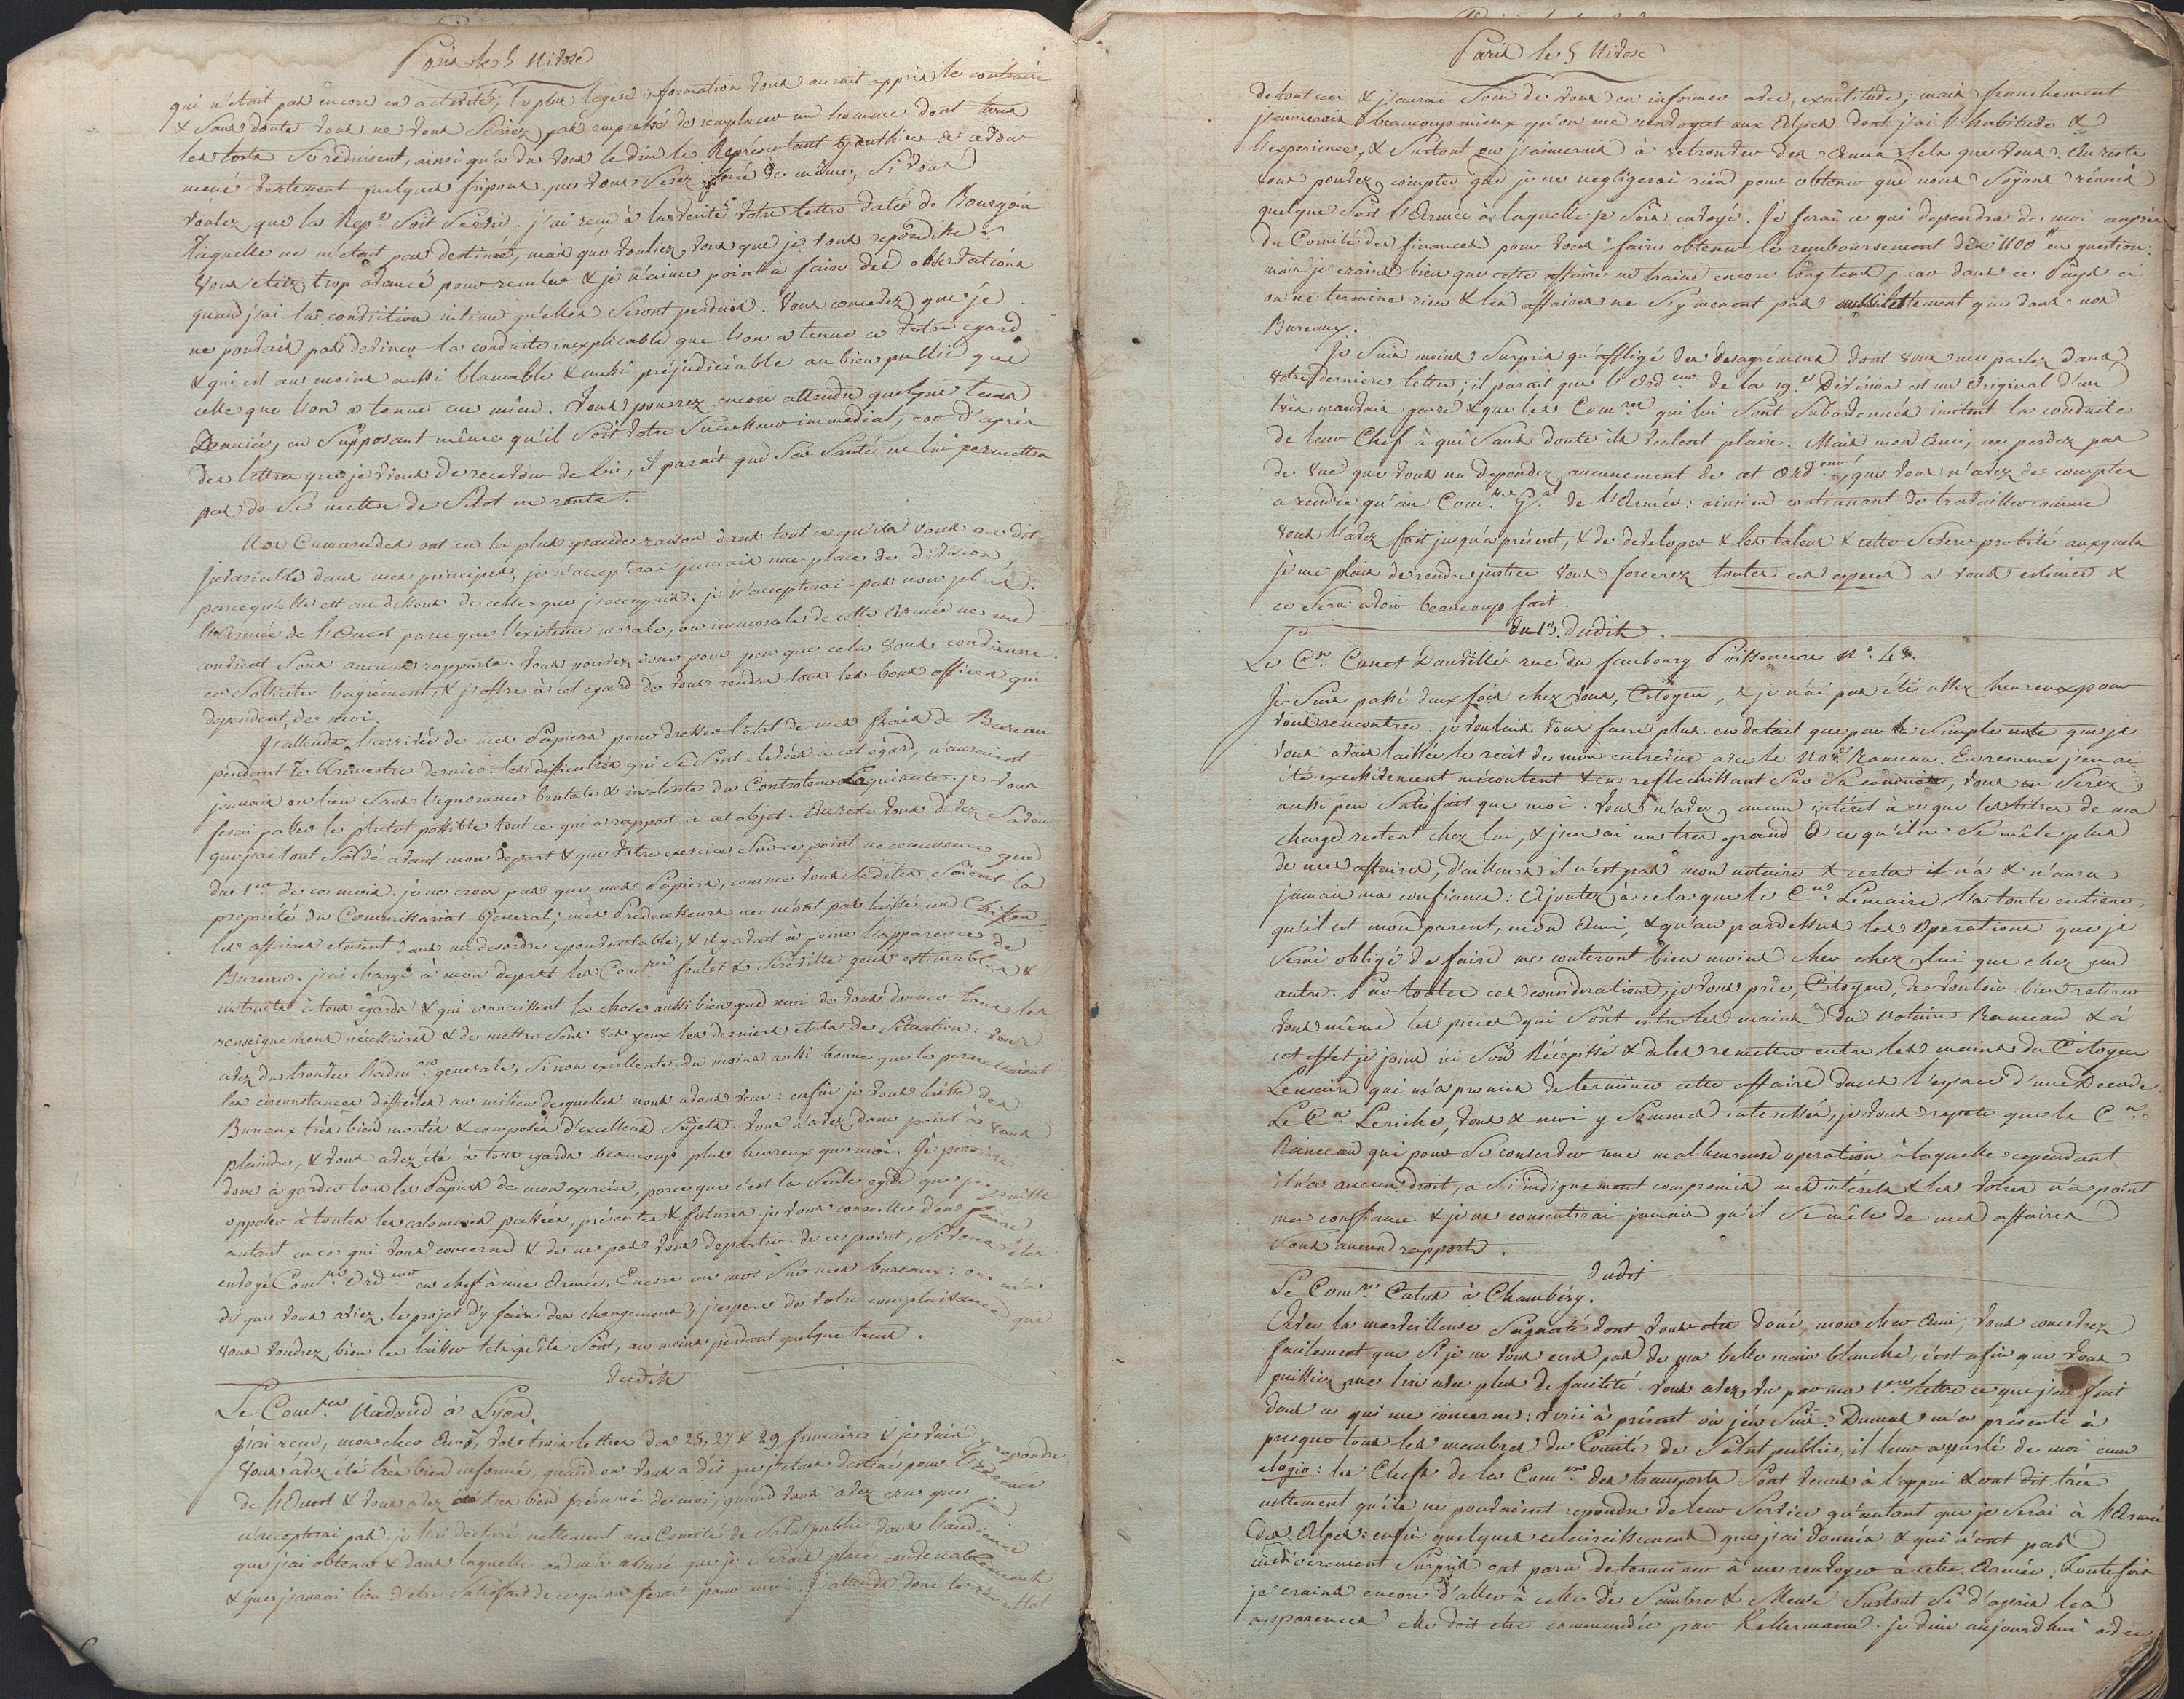 Paris le 5 Nivose
qui n'était pas encore en activité, la plus legere information vous aurait appris le contraire
& sans doute vous ne vous seriez pas empressé de remplacer un homme dont tous
les torts se reduisent, ainsi qu'a du vous le dire le Représentant Gauthier à avoir
mené vertement quelques fripons que vous serez forcé de même, si vous
voulez que la Rep.e soit servie. j'ai reçu à la verité votre lettre datée de Bourgoin
laquelle ne m'était pas destinée, mais que vouliez vous que je vous repondisse
vous etiez trop avancé pour reculer & je n'aime point à faire des observations
quand j'ai la conviction intime qu'elles seront perdues. Vous concevez que je
ne pouvais pas deviner la conduite inexplicable que l'on a tenue à votre egard
& qui est au moins aussi blamable & aussi préjudiciable au bien public que
celle que l'on a tenue au mien. Vous pourrez encore attendre quelque tems
Demuie, en supposant même qu'il soit votre successeur immediat, car d'après
des lettres que je viens de recevoir de lui, il parait que sa santé ne lui permettra
pas de se mettre de sitot en route.
Nos Camarades ont eu la plus grande raison dans tout ce qu'ils vous ont dit
Invariable dans mes principes, je n'accepterai jamais une place de division,
parcequ'elle est au dessous de celle que j'occupais. je n'accepterai pas non plus
l'Armée de l'Ouest parce que l'existence morale, ou immorale de cette Armée ne me
convient sous aucuns rapports. Vous pouvez donc pour peu que cela vous convienne
en solliciter l'agrément, & j'offre à cet egard de vous rendre tous les bons offices qui
dependent de moi.
J'attends l'arrivée de mes Papiers pour dresser l'etat de mes frais de Bureau
pendant le Trimestre dernier. les difficultés qui se sont elevées à cet egard, n'auraient
jamais eu lieu sans l'ignorance brutale & insolente du Controleur Laguinaude. je vous
ferai passer le plutot possible tout ce qui a rapport à cet objet. Au reste vous devez savoir
que j'ai tout soldé avant mon depart & que votre exercice sur ce point ne commence que
du 1er de ce mois. je ne crois pas que mes Papiers, comme vous le dites soient la
propriété du Commissariat General; mes Predecesseurs ne m'ont pas laissé un Chifon
les affaires etaient dans un desordre epouvantable, & il y avait à peine l'apparence de
Bureau. j'ai chargé à mon depart les Com.res foulet & Sireville gens estimables &
instruits à tous égards & qui connaissent la chose aussi bien que moi de vous donner tous les
renseignemens nécessaires & de mettre sous vos yeux les derniers etats de situation: vous
avez du trouver l'adm.on generale, si non excellente, du moins aussi bonne que le permettaient
les circonstances difficiles au milieu desquelles nous avons vecu: enfin je vous laisse des
Bureaux très bien montés & composés d'excellens sujets. Vous n'avez donc point à vous
plaindre, & vous avez été à tous egards beaucoup plus heureux que moi. Je persiste
donc à garder tous les Papiers de mon exercice, parceque c'est la seule egide que je puisse
opposer à toutes les calomnies passées, présentes & futures. je vous conseille d'en faire
autant en ce qui vous concerne & de ne pas vous departir de ce point, si vous êtes
envoyé Com.re Ord.eur en chef à une Armée. Encore un mot sur mes bureaux: on m'a
dit que vous aviez le projet d'y faire des changemens; j'espere de votre complaisance que
vous voudrez bien les laisser tels qu'ils sont, au moins pendant quelque tems.
dudit
Le Com.re Nadaud à Lyon.
J'ai reçu, mon cher Ami, vos trois lettres des 25, 27 & 29 frimaire & je vais y repondre.
Vous avez été très bien informé, quand on vous a dit que j'etais destiné pour l'Armée
de l'Ouest & vous avez très bien présumé de moi, quand vous avez cru que je
n'accepterai pas. je l'ai declaré nettement au Comité de Salut public dans l'audience
que j'ai obtenu & dans laquelle on m'a assuré que je serais placé convenablement
& que j'aurai lieu d'etre satisfait de ce qu'on ferait pour moi. J'attends donc le résultat
Paris le 5 Nivose
de tout ceci & j'aurai soin de vous en informer avec exactitude; mais franchement
j'aimerais beaucoup mieux qu'on me renvoyat aux Alpes dont j'ai l'habitude &
l'experience, & surtout où j'aimerais à retrouver des Amis tels que vous. Au reste
vous pouvez compter que je ne negligerai rien pour obtenir que nous soyons réunis
quelque soit l'Armée à laquelle je sois envoyé. Je ferai ce qui dependra de moi auprès
du Comité des finances pour vous faire obtenir le remboursement des 1100 tt en question.
mais je crains bien que cette affaire ne traine encore longtems, car dans ce Pays ci
on ne termine rien & les affaires ne s'y menent pas aussi lestement que dans nos
Bureaux.
Je suis moins surpris qu'affligé des desagrémens dont vous me parlez dans
votre derniere lettre; il parait que l'Ord.eur de la 19.e Division est un Original d'un
très mauvais genre & que les Com.res qui lui sont subordonnés imitent la conduite
de leur Chef à qui sans doute ils veulent plaire. Mais mon Ami, ne perdez pas
de vue que vous ne dependez aucunement de cet Ord.eur, que vous n'avez de comptes
a rendre qu'au Com.re G.al de l'Armée: ainsi en continuant de travailler comme
vous l'avez fait jusqu'à présent, & de developer & les talens & cette severe probité auxquels
je me plais de rendre justice vous forcerez toutes ces especes à vous estimer &
ce sera avoir beaucoup fait.
du 13. dudit.
Le C.n Canet d'auvillé rue du faubourg Poissoniere N.o 48.
Je suis passé deux fois chez vous, Citoyen, & je n'ai pas été assez heureux pour
vous rencontrer. je voulais vous faire plus en detail que par la simple note que je
vous avais laissée le recit de mon entrevue avec le No.re Rameau. En resumé j'en ai
été excessivement mécontent & en reflechissant sur sa conduite, vous en serez
aussi peu satisfait que moi. Vous n'avez aucun intérêt à ce que les titres de ma
charge restent chez lui, & j'en ai un tres grand à ce qu'il ne se mêle plus
de mes affaires, d'ailleurs il n'est pas mon notaire & certes il n'a & n'aura
jamais ma confiance: Ajoutez à cela que le C.en Lemaire l'a toute entiere,
qu'il est mon parent, mon Ami, & qu'au pardessus les Operations que je
serai obligé de faire me couteront bien moins cher chez lui que chez un
autre. Par toutes ces considerations, je vous prie, Citoyen, de vouloir bien retirer
vous même les pieces qui sont entre les mains du Notaire Rameau & à
cet effet je joins ici son Récépissé & de les remettre entre les mains du Citoyen
Lemaire qui m'a promis de terminer cette affaire dans l'espace d'une Decade.
Le C.en Leriche, vous & moi y sommes interessés, je vous repete que le C.en
Rameau qui pour se conserver une malheureuse operation à laquelle cependant
il n'a aucun droit, a si indignement compromis mes intérêts & les votres n'a point
ma confiance & je ne consentirai jamais qu'il se mêle de mes affaires
sous aucun rapport.
dudit
Le Com.re Cutus à Chambéry.
Avec la merveilleuse sagacité dont vous etes doué, mon cher Ami, vous concevrez
facilement que si je ne vous ecris pas de ma belle main blanche, c'est afin que vous
puissiez me lire avec plus de facilité. Vous avez vu par ma 1ere lettre ce que j'ai fait
dans ce qui me concerne: voici à présent où j'en suis. Dumas m'a présenté à
presque tous les membres du Comité de Salut public, il leur a parlé de moi cum
elogio: les Chefs de la Com.on des transports sont venus à l'appui & ont dit très
nettement qu'ils ne pouvaient repondre de leur service qu'autant que je serai à l'Armée
des Alpes: enfin quelques eclaircissemens que j'ai donnés & qui n'ont pas
médiocrement surpris ont paru determiner à me renvoyer à cette Armée. Toutefois
je crains encore d'aller à celle de Sambre & Meuse surtout si d'après les
apparences elle doit etre commandée par Kellermann. je dine aujourd'hui avec